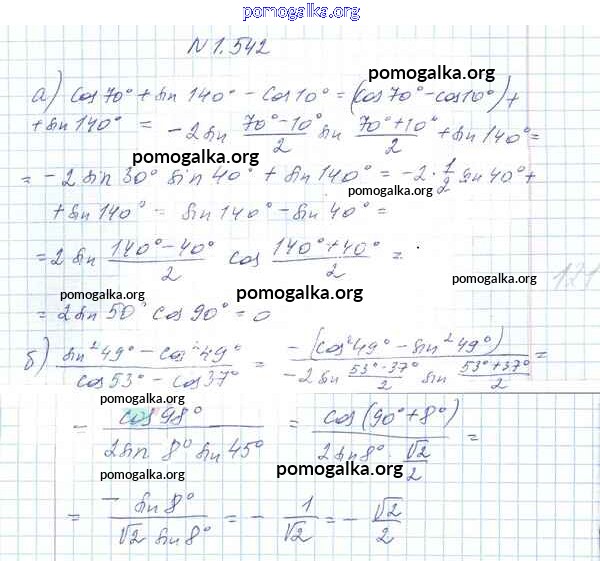 pomogalka.org
N 1.542
pomogalka.org
а) cos 70° + sin 140° - cos 10° = (cos 70° - cos 10°) +
+ sin 140° = -2 sin (70° - 10°)/2 sin (70° + 10°)/2 + sin 140° =
pomogalka.org
= -2 sin 30° sin 40° + sin 140° = -2 · 1/2 sin 40° +
pomogalka.org
+ sin 140° = sin 140° - sin 40° =
pomogalka.org
= 2 sin (140° - 40°)/2 cos (140° + 40°)/2 =
pomogalka.org
pomogalka.org
pomogalka.org
= 2 sin 50° cos 90° = 0
б) (sin² 49° - cos² 49°)/(cos 53° - cos 37°) = -(cos² 49° - sin² 49°)/(-2 sin (53° - 37°)/2 sin (53° + 37°)/2) =
pomogalka.org
pomogalka.org
- cos 98°/(2 sin 8° sin 45°) = cos (90° + 8°)/(2 sin 8° · √2/2) =
pomogalka.org
pomogalka.org
= - sin 8°/(√2 sin 8°) = - 1/√2 = - √2/2
pomogalka.org